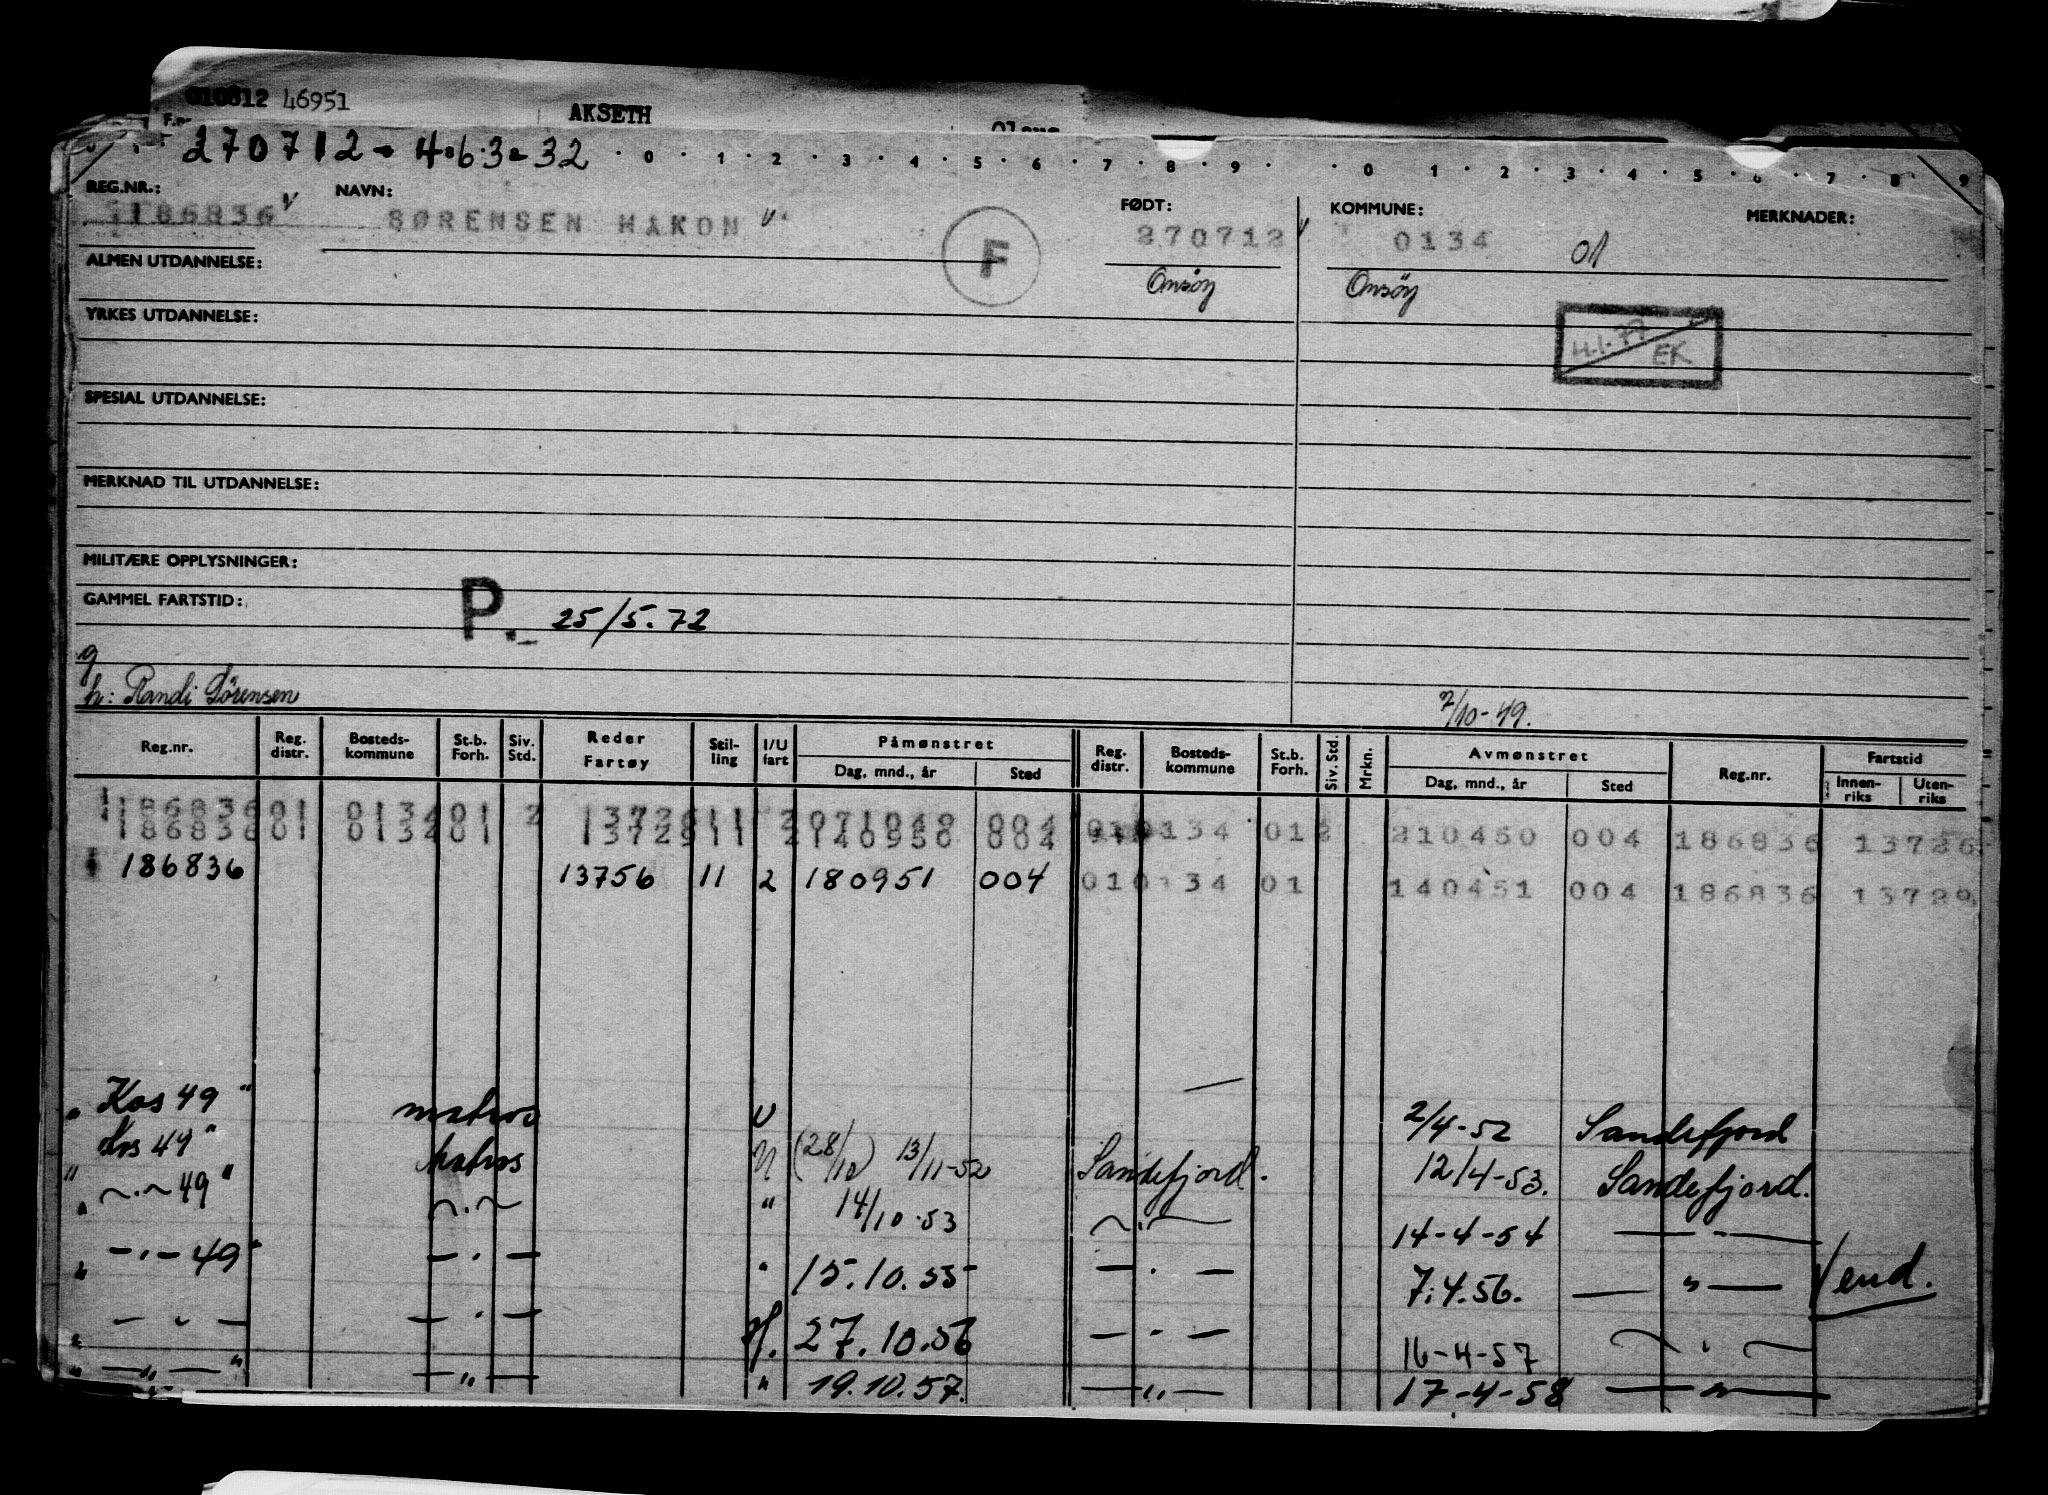 010812 46951 AKSETH
270712 - 4.6.3 - 32 · 0 · 1 · 2 · 3 · 4 · 5 · 6 · 7 · 8 · 9 · · 0 · 1 · 2 · 3 · 4 · 5 · 6 · 7 · 8 · 9
REG.NR.: NAVN: FØDT: KOMMUNE: MERKNADER:
186836 v SØRENSEN HAKON v 270712 v 0134 01
ALMEN UTDANNELSE: F
Onsöy Onsöy
YRKES UTDANNELSE:
4.1.77 EK
SPESIAL UTDANNELSE:
MERKNAD TIL UTDANNELSE:
MILITÆRE OPPLYSNINGER:
GAMMEL FARTSTID: P. 25/5.72
g
h: Randi Sörensen 7/10-49.
Reg.nr. Reg. distr. Bosteds-kommune St.b. Forh. Siv. Std. Reder Fartøy Stil-ling I/U fart Påmønstret Dag, mnd., år Sted Reg. distr. Bosteds-kommune St.b. Forh. Siv. Std. Mrkn. Avmønstret Dag, mnd., år Sted Reg.nr. Fartstid Innen-riks Uten-riks
186836 01 0134 01 2 13726 11 2 071049 004 01 0134 01 2 210450 004 186836 13726
186836 01 0134 01 13729 11 2 140950 004
186836 13756 11 2 180951 004 01 0134 01 140451 004 186836 13729
" Kos 49 " matros U — 2/4-52 Sandefjord
" Kos 49 " Matros U (28/10) 13/11-52 Sandefjord. 12/4-53. Sandefjord.
" ~ . ~ 49 " ~ . ~ " 14/10.53 ~ . ~ 14-4-54 — " —
" — . — 49 " — . — " 15.10.55 — . — 7.4.56. — " —
" — " — — . — 27.10.56 — . — 16-4-57 ~ . ~
" — " — " — " — " 19.10.57. — " — 17-4-58 — " —